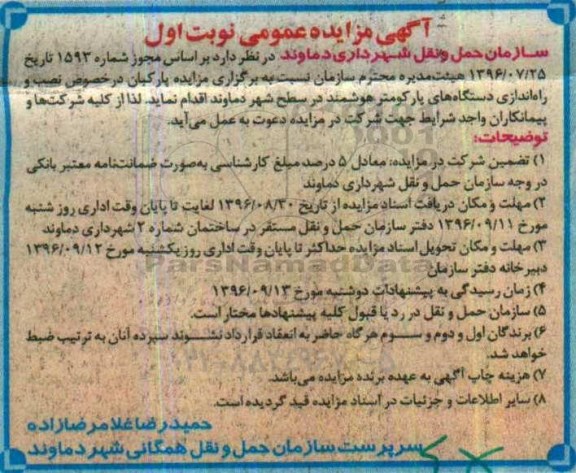 آگهی مزایده عمومی نوبت اول
سازمان حمل و نقل شهرداری دماوند در نظر دارد بر اساس مجوز شماره ۱۵۹۳ تاریخ
۱۳۹۶/۰۷/۲۵ هیئت مدیره محترم سازمان نسبت به برگزاری مزایده پارکبان درخصوص نصب و
راه‌اندازی دستگاه‌های پارکومتر هوشمند در سطح شهر دماوند اقدام نماید. لذا از کلیه شرکت‌ها و
پیمانکاران واجد شرایط جهت شرکت در مزایده دعوت به عمل می‌آید.
توضیحات:
۱) تضمین شرکت در مزایده: معادل ۵ درصد مبلغ کارشناسی به‌صورت ضمانت‌نامه معتبر بانکی
در وجه سازمان حمل و نقل شهرداری دماوند
۲) مهلت و مکان دریافت اسناد مزایده از تاریخ ۱۳۹۶/۰۸/۳۰ لغایت تا پایان وقت اداری روز شنبه
مورخ ۱۳۹۶/۰۹/۱۱ دفتر سازمان حمل و نقل مستقر در ساختمان شماره ۲ شهرداری دماوند
۳) مهلت و مکان تحویل اسناد مزایده حداکثر تا پایان وقت اداری روز یکشنبه مورخ ۱۳۹۶/۰۹/۱۲
دبیرخانه دفتر سازمان
ParsNamadData
۴) زمان رسیدگی به پیشنهادات دوشنبه مورخ ۱۳۹۶/۰۹/۱۳
۵) سازمان حمل و نقل در رد یا قبول کلیه پیشنهادها مختار است.
۶) برندگان اول و دوم و سوم هرگاه حاضر به انعقاد قرارداد نشوند سپرده آنان به ترتیب ضبط
خواهد شد.
۷) هزینه چاپ آگهی به عهده برنده مزایده می‌باشد.
۸) سایر اطلاعات و جزئیات در اسناد مزایده قید گردیده است.
حمیدرضا غلامرضازاده
سرپرست سازمان حمل و نقل همگانی شهر دماوند